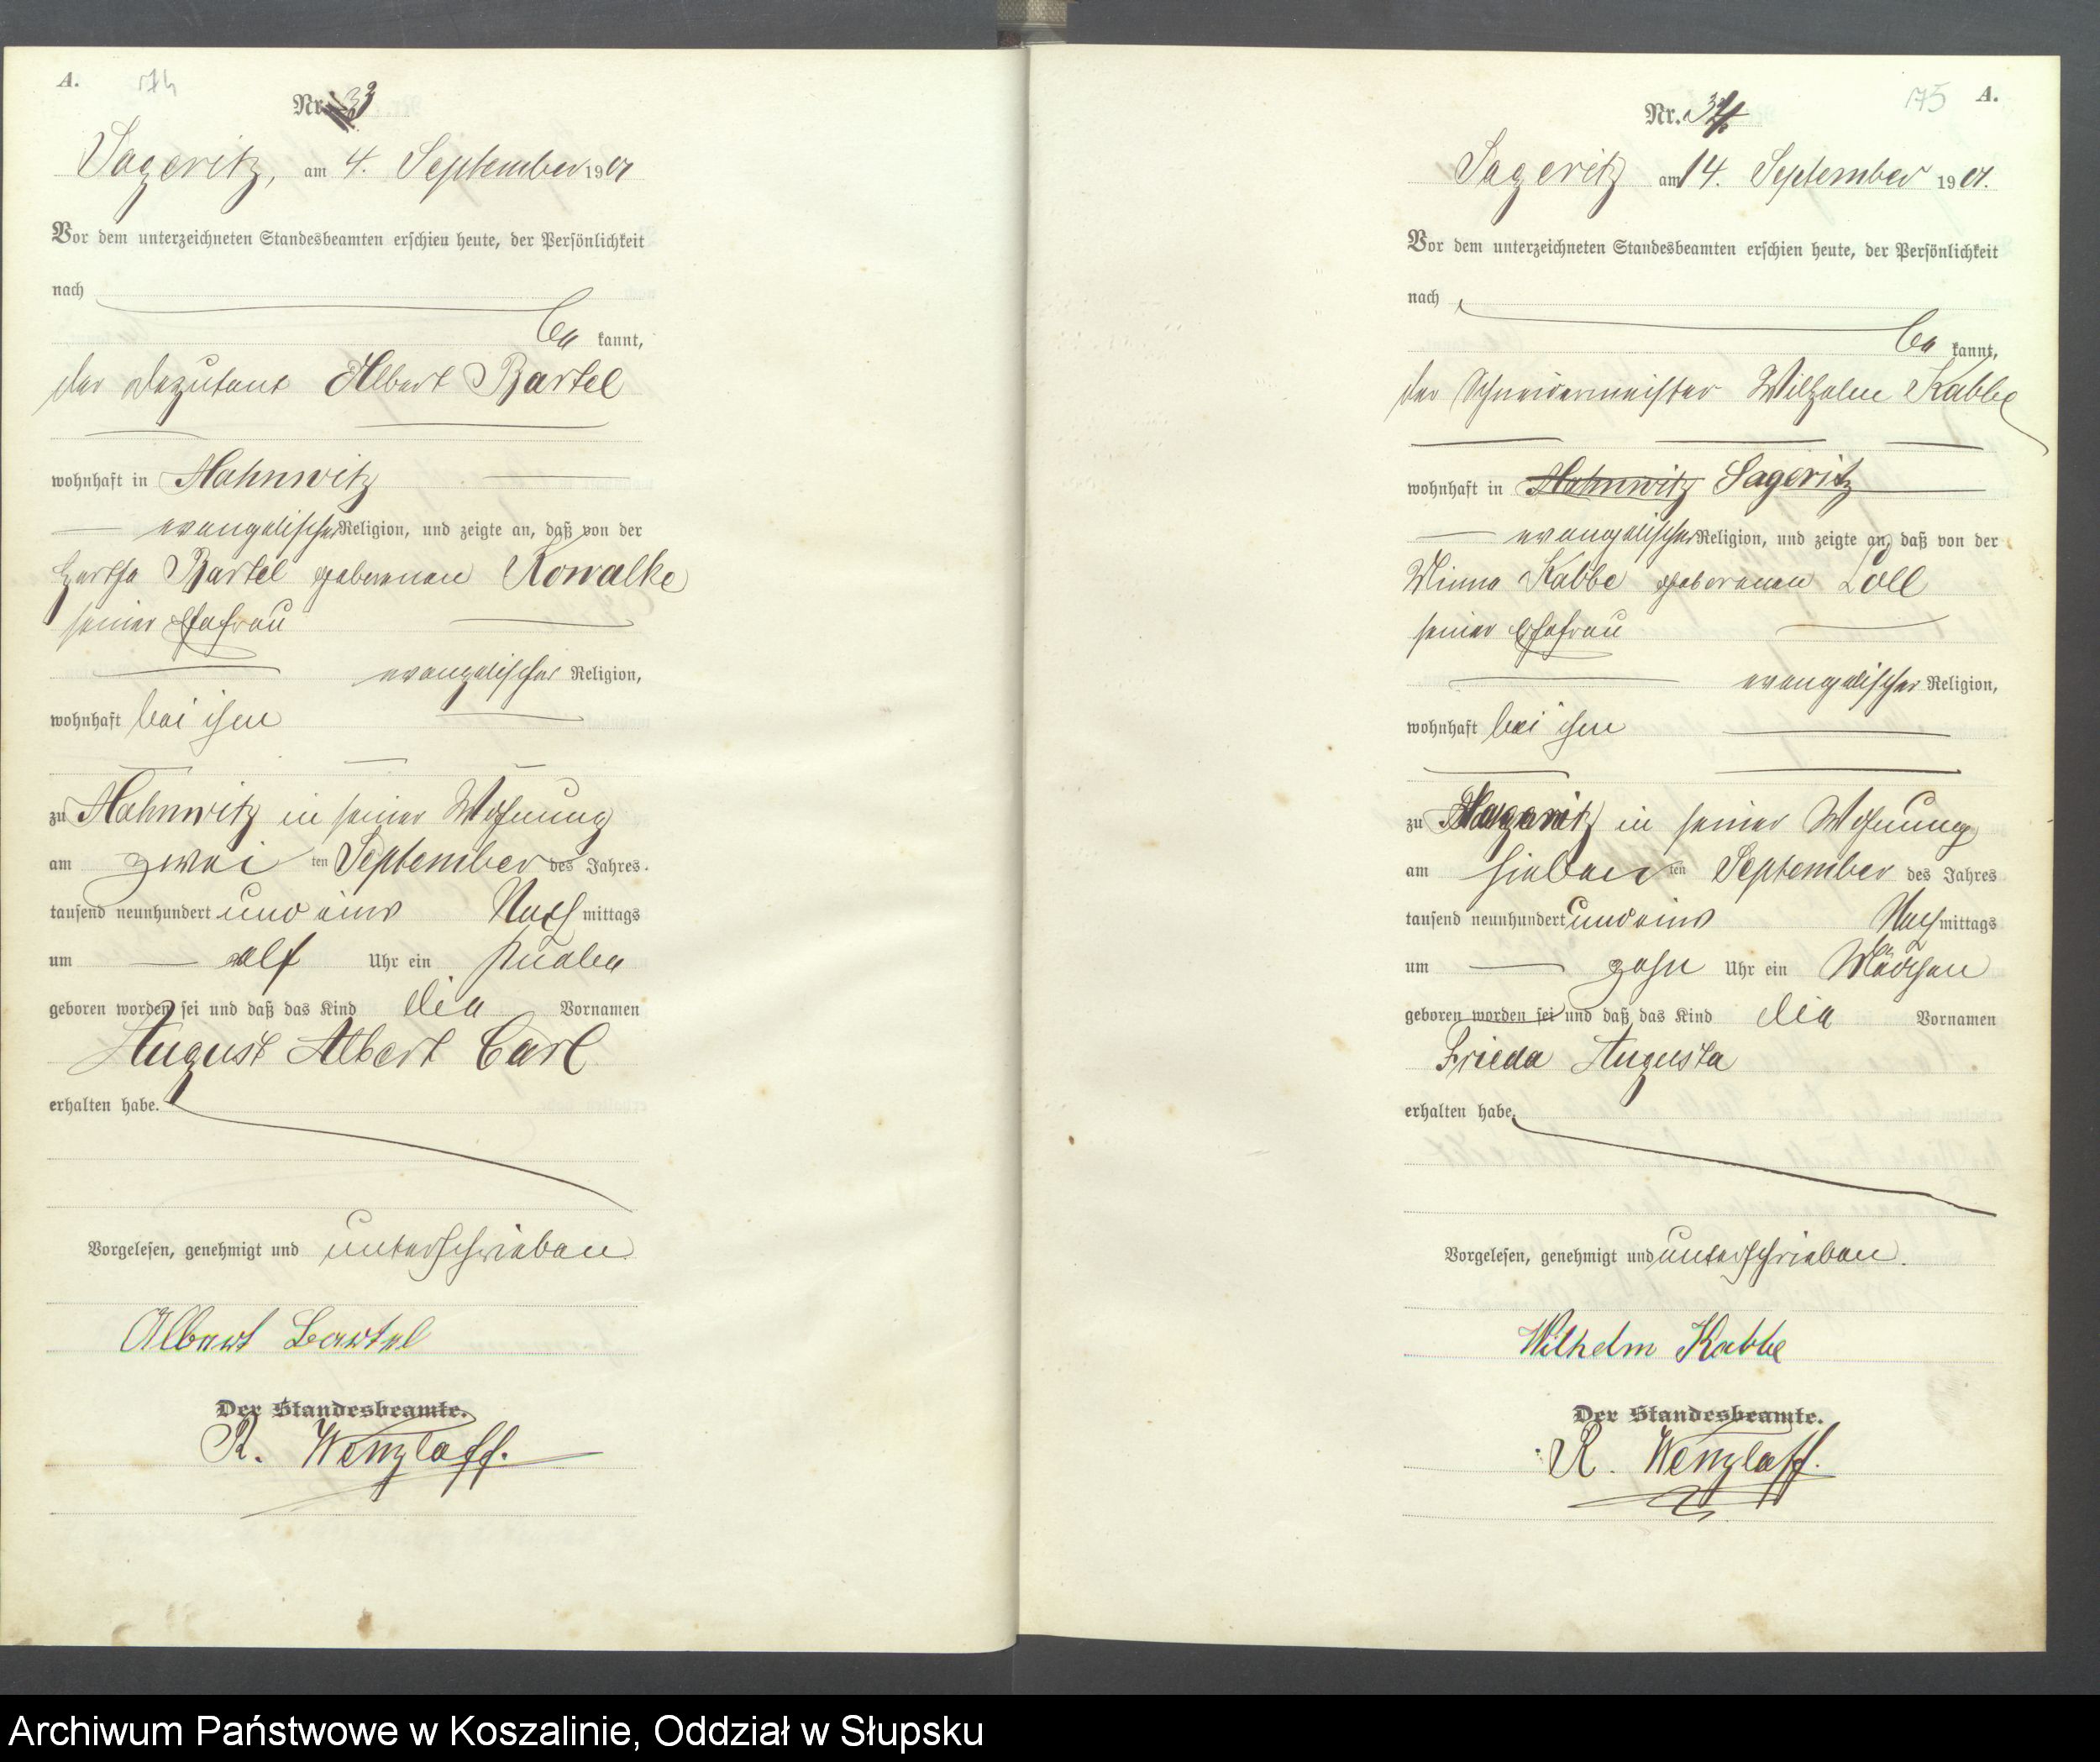 A. 174
Nr. 33
Sageritz, am 4. September 1901
Vor dem unterzeichneten Standesbeamten erschien heute, der Persönlichkeit
nach
be kannt,
der Deputant Albert Bartel
wohnhaft in Hahnwitz
evangelischer Religion, und zeigte an, daß von der
Hertha Bartel geborenen Kowalke
seiner Ehefrau
evangelischer Religion,
wohnhaft bei ihm
zu Hahnwitz in seiner Wohnung
am zwei ten September des Jahres
tausend neunhundert und eins Nach mittags
um elf Uhr ein Knabe
geboren worden sei und daß das Kind die Vornamen
August Albert Carl
erhalten habe.
Vorgelesen, genehmigt und unterschrieben
Albert Bartel
Der Standesbeamte.
R. Wenzlaff.
175 A.
Nr. 34
Sageritz am 14. September 1901.
Vor dem unterzeichneten Standesbeamten erschien heute, der Persönlichkeit
nach
be kannt,
der Schneidermeister Wilhelm Kabbe
wohnhaft in Hahnwitz Sageritz
evangelischer Religion, und zeigte an, daß von der
Minna Kabbe geborenen Loll
seiner Ehefrau
evangelischer Religion,
wohnhaft bei ihm
zu Sageritz in seiner Wohnung
am sieben ten September des Jahres
tausend neunhundert und eins Nach mittags
um zehn Uhr ein Mädchen
geboren worden sei und daß das Kind die Vornamen
Frieda Augusta
erhalten habe.
Vorgelesen, genehmigt und unterschrieben.
Wilhelm Kabbe
Der Standesbeamte.
R. Wenzlaff.
Archiwum Państwowe w Koszalinie, Oddział w Słupsku